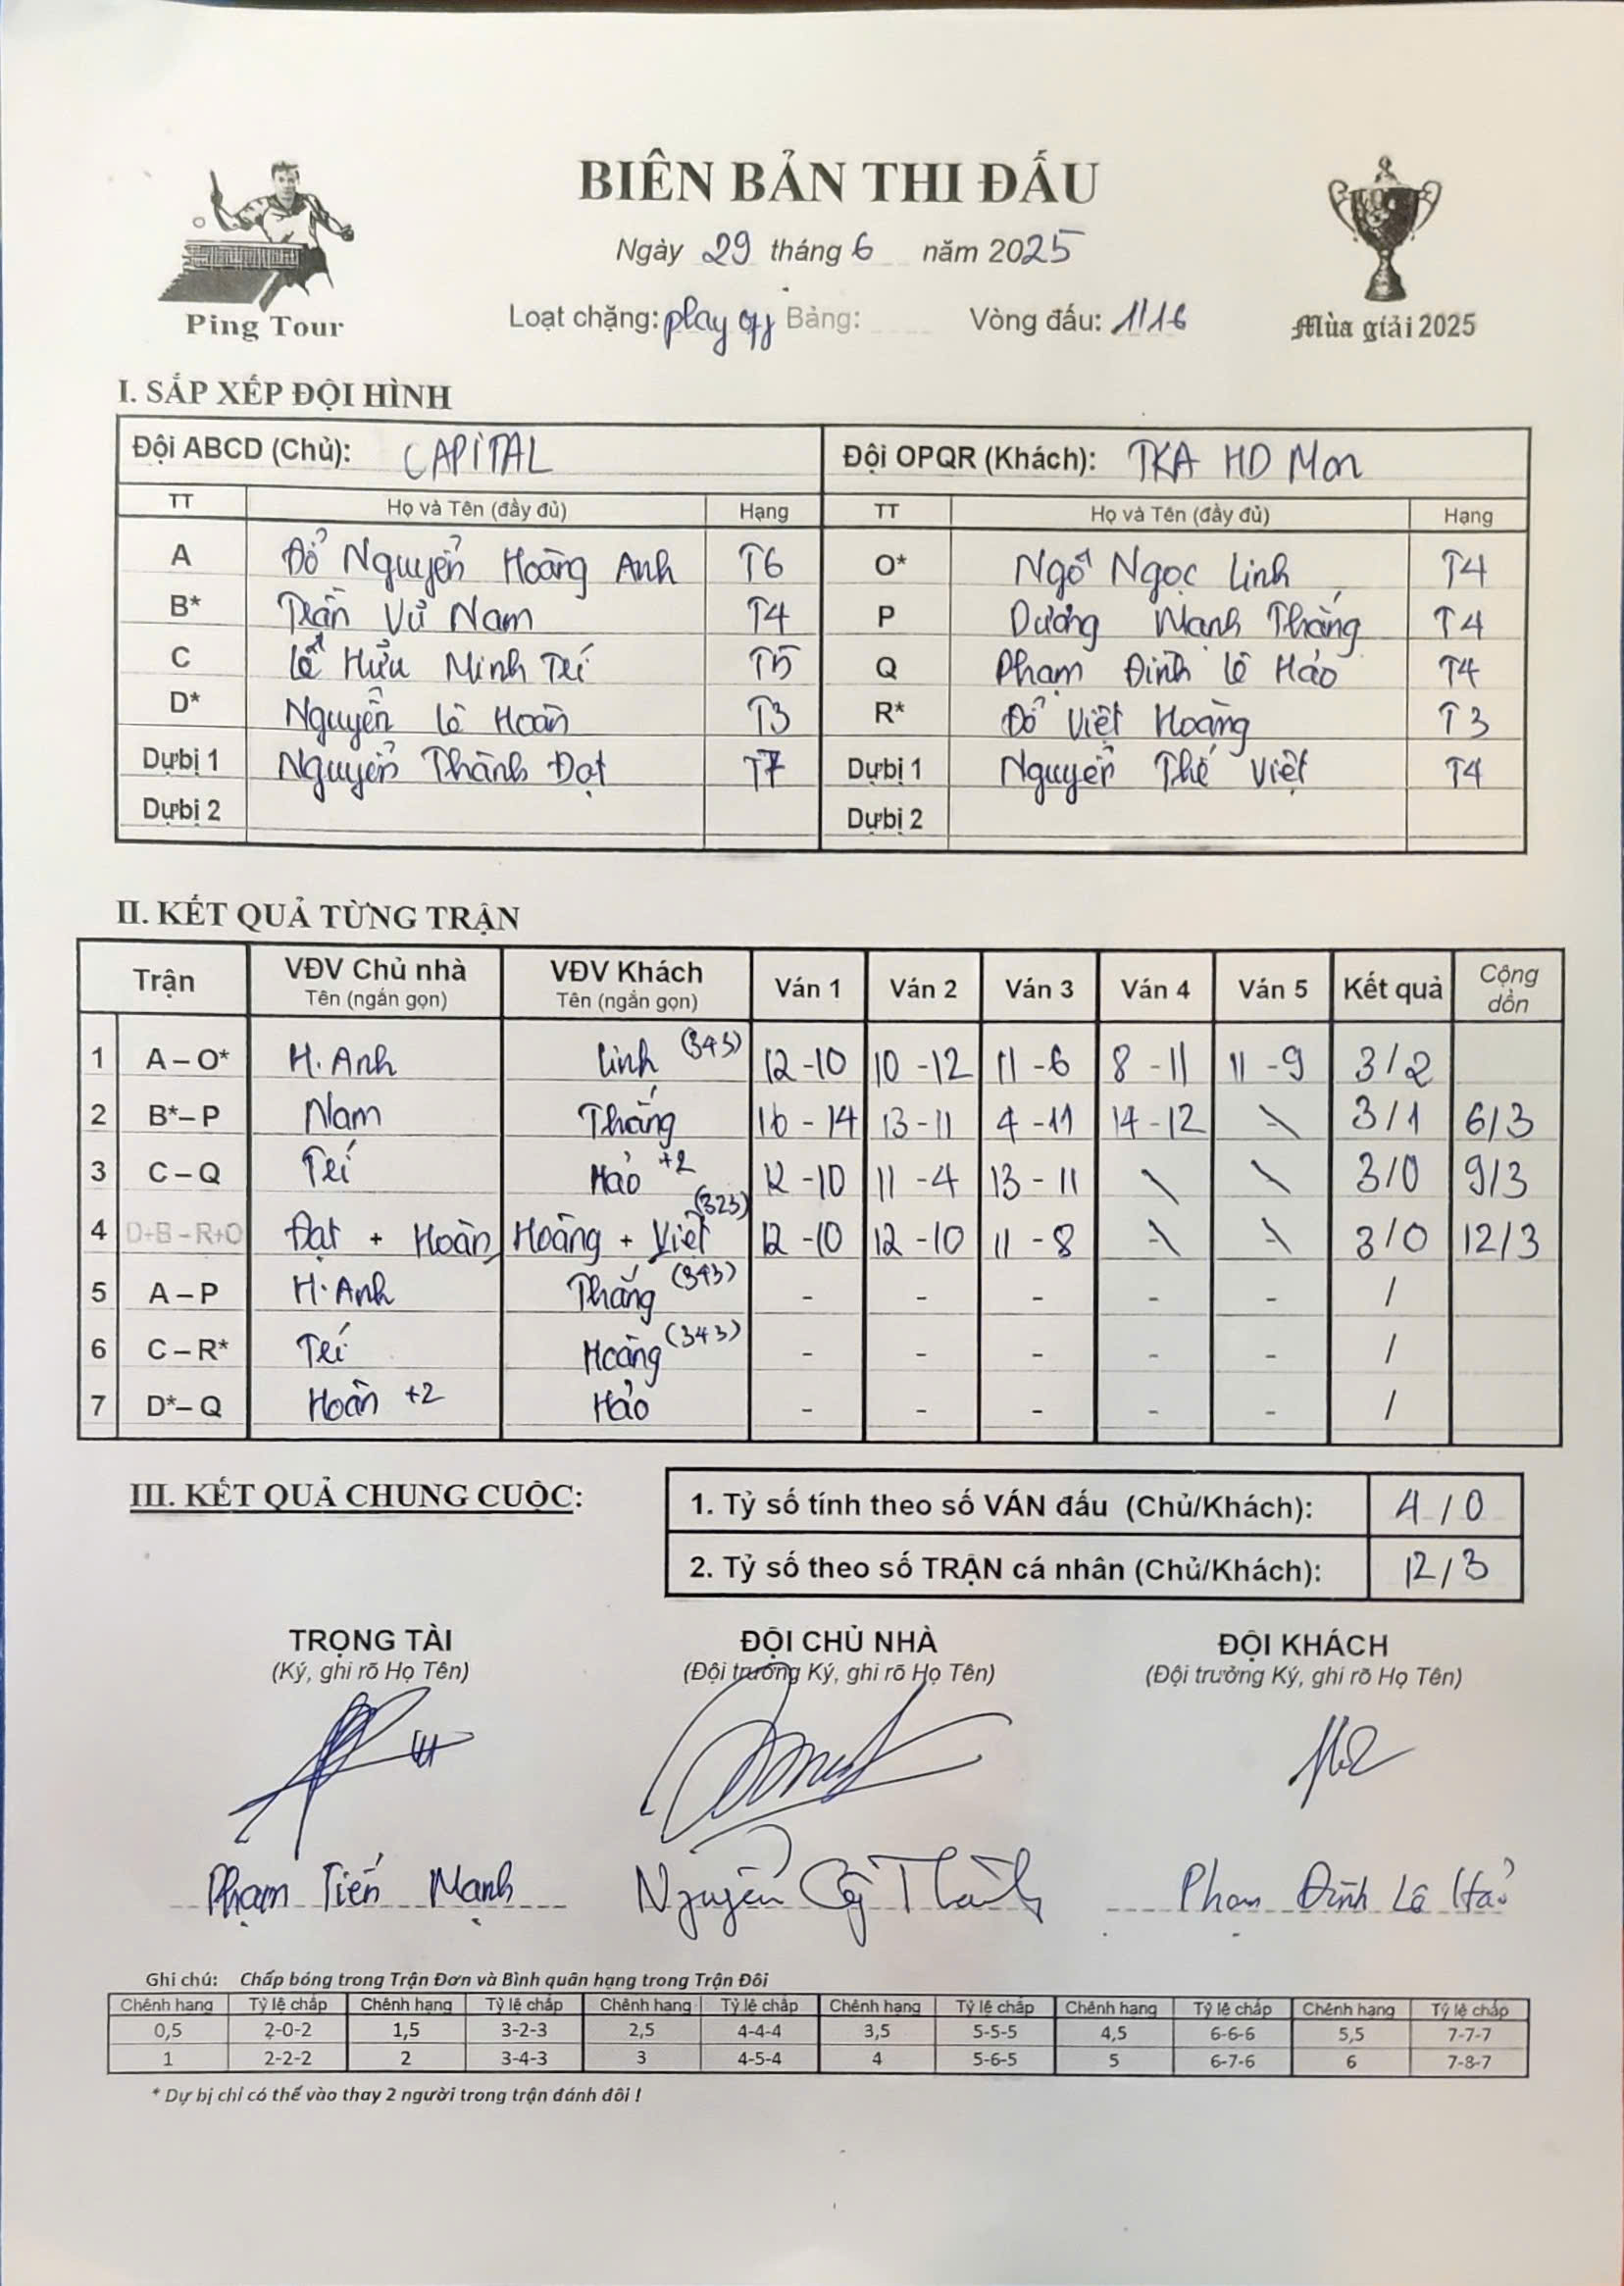 BIÊN BẢN THI ĐẤU
Ngày 29 tháng 6 năm 2025
Loạt chặng: play off Bảng: Vòng đấu: 1/16
Ping Tour
Mùa giải 2025
I. SẮP XẾP ĐỘI HÌNH
Đội ABCD (Chủ): CAPITAL Đội OPQR (Khách): TKA HD Mon
TT Họ và Tên (đầy đủ) Hạng TT Họ và Tên (đầy đủ) Hạng
A Đỗ Nguyễn Hoàng Anh T6 O* Ngô Ngọc Linh T4
B* Trần Vũ Nam T4 P Dương Mạnh Thắng T4
C Lê Hữu Minh Trí T5 Q Phạm Đình Lê Hảo T4
D* Nguyễn Lê Hoàn T3 R* Đỗ Việt Hoàng T3
Dự bị 1 Nguyễn Thành Đạt T7 Dự bị 1 Nguyễn Thế Việt T4
Dự bị 2 Dự bị 2
II. KẾT QUẢ TỪNG TRẬN
Trận VĐV Chủ nhà VĐV Khách Ván 1 Ván 2 Ván 3 Ván 4 Ván 5 Kết quả Cộng dồn
Tên (ngắn gọn) Tên (ngắn gọn)
1 A – O* H.Anh Linh (343) 12-10 10-12 11-6 8-11 11-9 3/2
2 B* – P Nam Thắng 16-14 13-11 4-11 14-12 \ 3/1 6/3
3 C – Q Trí Hảo +2 12-10 11-4 13-11 \ \ 3/0 9/3
4 D+B – R+O Đạt + Hoàn Hoàng + Việt (323) 12-10 12-10 11-8 \ \ 3/0 12/3
5 A – P H.Anh Thắng (343) - - - - - /
6 C – R* Trí Hoàng (343) - - - - - /
7 D* – Q Hoàn +2 Hảo - - - - - /
III. KẾT QUẢ CHUNG CUỘC:
1. Tỷ số tính theo số VÁN đấu (Chủ/Khách): 4/0
2. Tỷ số theo số TRẬN cá nhân (Chủ/Khách): 12/3
TRỌNG TÀI ĐỘI CHỦ NHÀ ĐỘI KHÁCH
(Ký, ghi rõ Họ Tên) (Đội trưởng Ký, ghi rõ Họ Tên) (Đội trưởng Ký, ghi rõ Họ Tên)
Phạm Tiến Mạnh Nguyễn Phạm Đình Lê Hảo
Ghi chú: Chấp bóng trong Trận Đơn và Bình quân hạng trong Trận Đôi
Chênh hạng Tỷ lệ chấp Chênh hạng Tỷ lệ chấp Chênh hạng Tỷ lệ chấp Chênh hạng Tỷ lệ chấp Chênh hạng Tỷ lệ chấp Chênh hạng Tỷ lệ chấp
0,5 2-0-2 1,5 3-2-3 2,5 4-4-4 3,5 5-5-5 4,5 6-6-6 5,5 7-7-7
1 2-2-2 2 3-4-3 3 4-5-4 4 5-6-5 5 6-7-6 6 7-8-7
* Dự bị chỉ có thể vào thay 2 người trong trận đánh đôi !